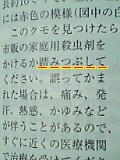 には赤色の模様（図中の白
このクモを見つけたら
市販の家庭用殺虫剤を
かけるか踏みつぶして
ください。誤ってかま
れた場合は、痛み、発
汗、熱感、かゆみなど
が伴うことがあるので、
すぐに近くの医療機関